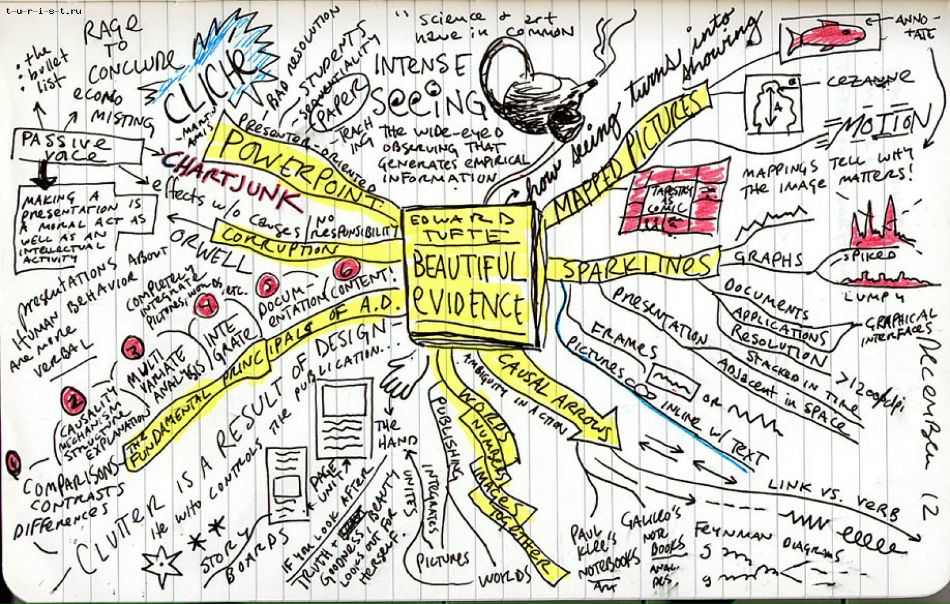 t-u-r-i-s-t.ru
• the
• bullet
• list
RAGE
TO
CONCLUDE
ECONO
MISTING
PASSIVE
VOICE
MAKING A
PRESENTATION IS
A MORAL ACT AS
WELL AS AN
INTELLECTUAL
ACTIVITY
CLICHE
BAD RESOLUTION
STUDENTS
SEQUENTIALITY
PAPER
TEACH
ING
"science & art
have in common
INTENSE
SEEING
THE WIDE-EYED
OBSERVING THAT
GENERATES EMPIRICAL
INFORMATION
how seeing turns into
showing
PRESENTER-ORIENTED
POWERPOINT
CHARTJUNK
effects w/o causes
NO
RESPONSIBILITY
CORRUPTION
ORWELL
EDWARD
TUFTE
BEAUTIFUL
EVIDENCE
MAPPED PICTURES
ANNO-
TATE
CEZANNE
MOTION
MAPPINGS
THE IMAGE
TELL WHY
MATTERS!
TAPESTRY
AS
COMIC
SPARKLINES
GRAPHS
SPIKED
LUMPY
DOCUMENTS
APPLICATIONS
RESOLUTION
GRAPHICAL
INTERFACES
>1200dpi
PRESENTATION
STACKED IN
TIME
ADJACENT IN SPACE
FRAMES
PICTURES
OR
INLINE W/ TEXT
CAUSAL ARROWS
AMBIGUITY IN ACTION
LINK VS. VERB
FEYNMAN
DIAGRAMS
PAUL
KLEE'S
NOTEBOOKS
ART
GALILEO'S
NOTE
BOOKS
DECEMBER 12
WORDS
NUMBERS
IMAGES
TOGETHER
PUBLISHING
INTEGRATES
PICTURES
WORDS
THE
HAND
UNITES
PAGE
UNITS
STORY
BOARDS
IF YOU LOOK AFTER
TRUTH &
GOODNESS BEAUTY
LOOKS OUT FOR
HERSELF.
THE
FUNDAMENTAL PRINCIPALS OF A.D.
1
COMPARISONS
CONTRASTS
DIFFERENCES
2
CAUSALITY
MECHANISM
STRUCTURE
EXPLANATION
3
MULTI
VARIATE
ANALYSIS
4
INTE
GRATE
COMPLETELY
INTEGRATE
5
DOCUM-
ENTATION
6
CONTENT.
PRESENTATIONS ABOUT
HUMAN BEHAVIOR
ARE MORE
VERBAL
CLUTTER IS A RESULT OF DESIGN
He WHO CONTROLS THE PUBLICATION.